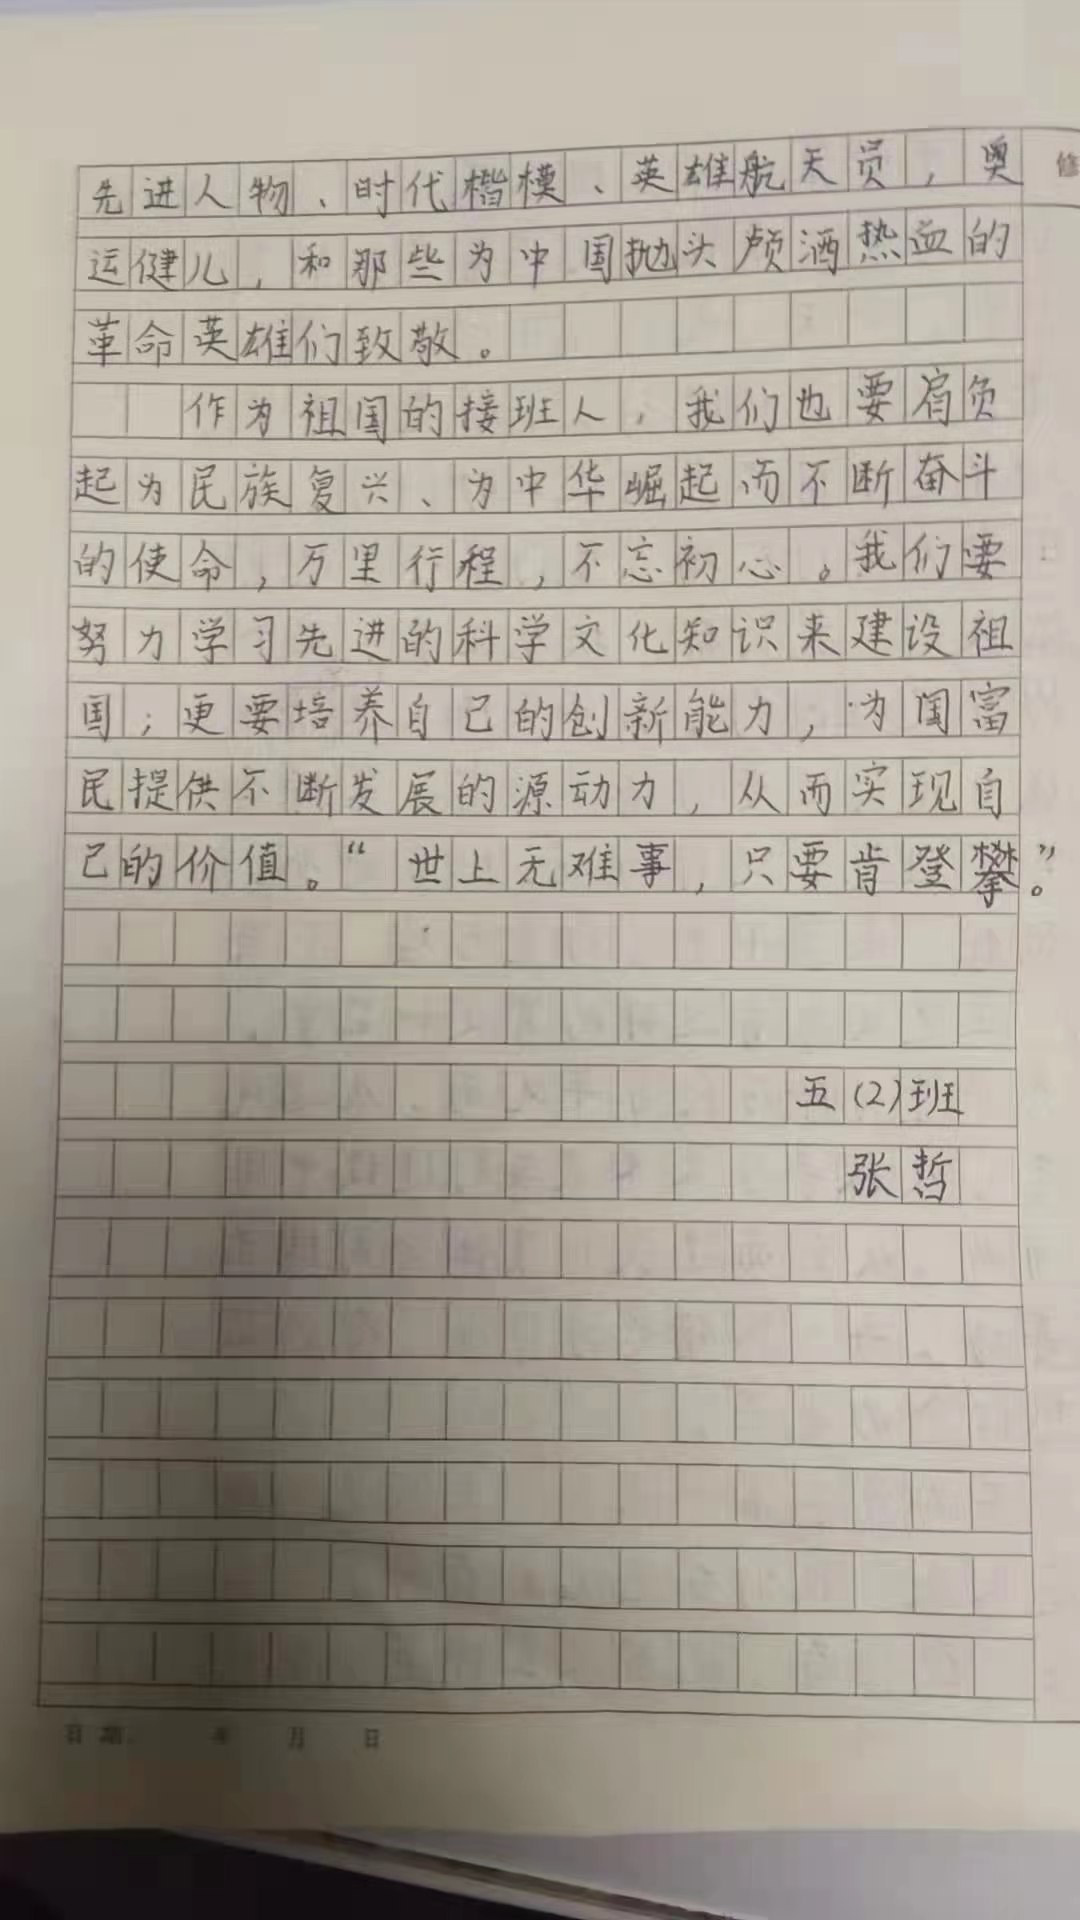 先进人物、时代楷模、英雄航天员，奥
修
运健儿，和那些为中国抛头颅洒热血的
革命英雄们致敬。
作为祖国的接班人，我们也要肩负
起为民族复兴、为中华崛起而不断奋斗
的使命，万里行程，不忘初心。我们要
努力学习先进的科学文化知识来建设祖
国；更要培养自己的创新能力，为国富
民提供不断发展的源动力，从而实现自
己的价值。“世上无难事，只要肯登攀”。
五(2)班
张哲
日期 年 月 日